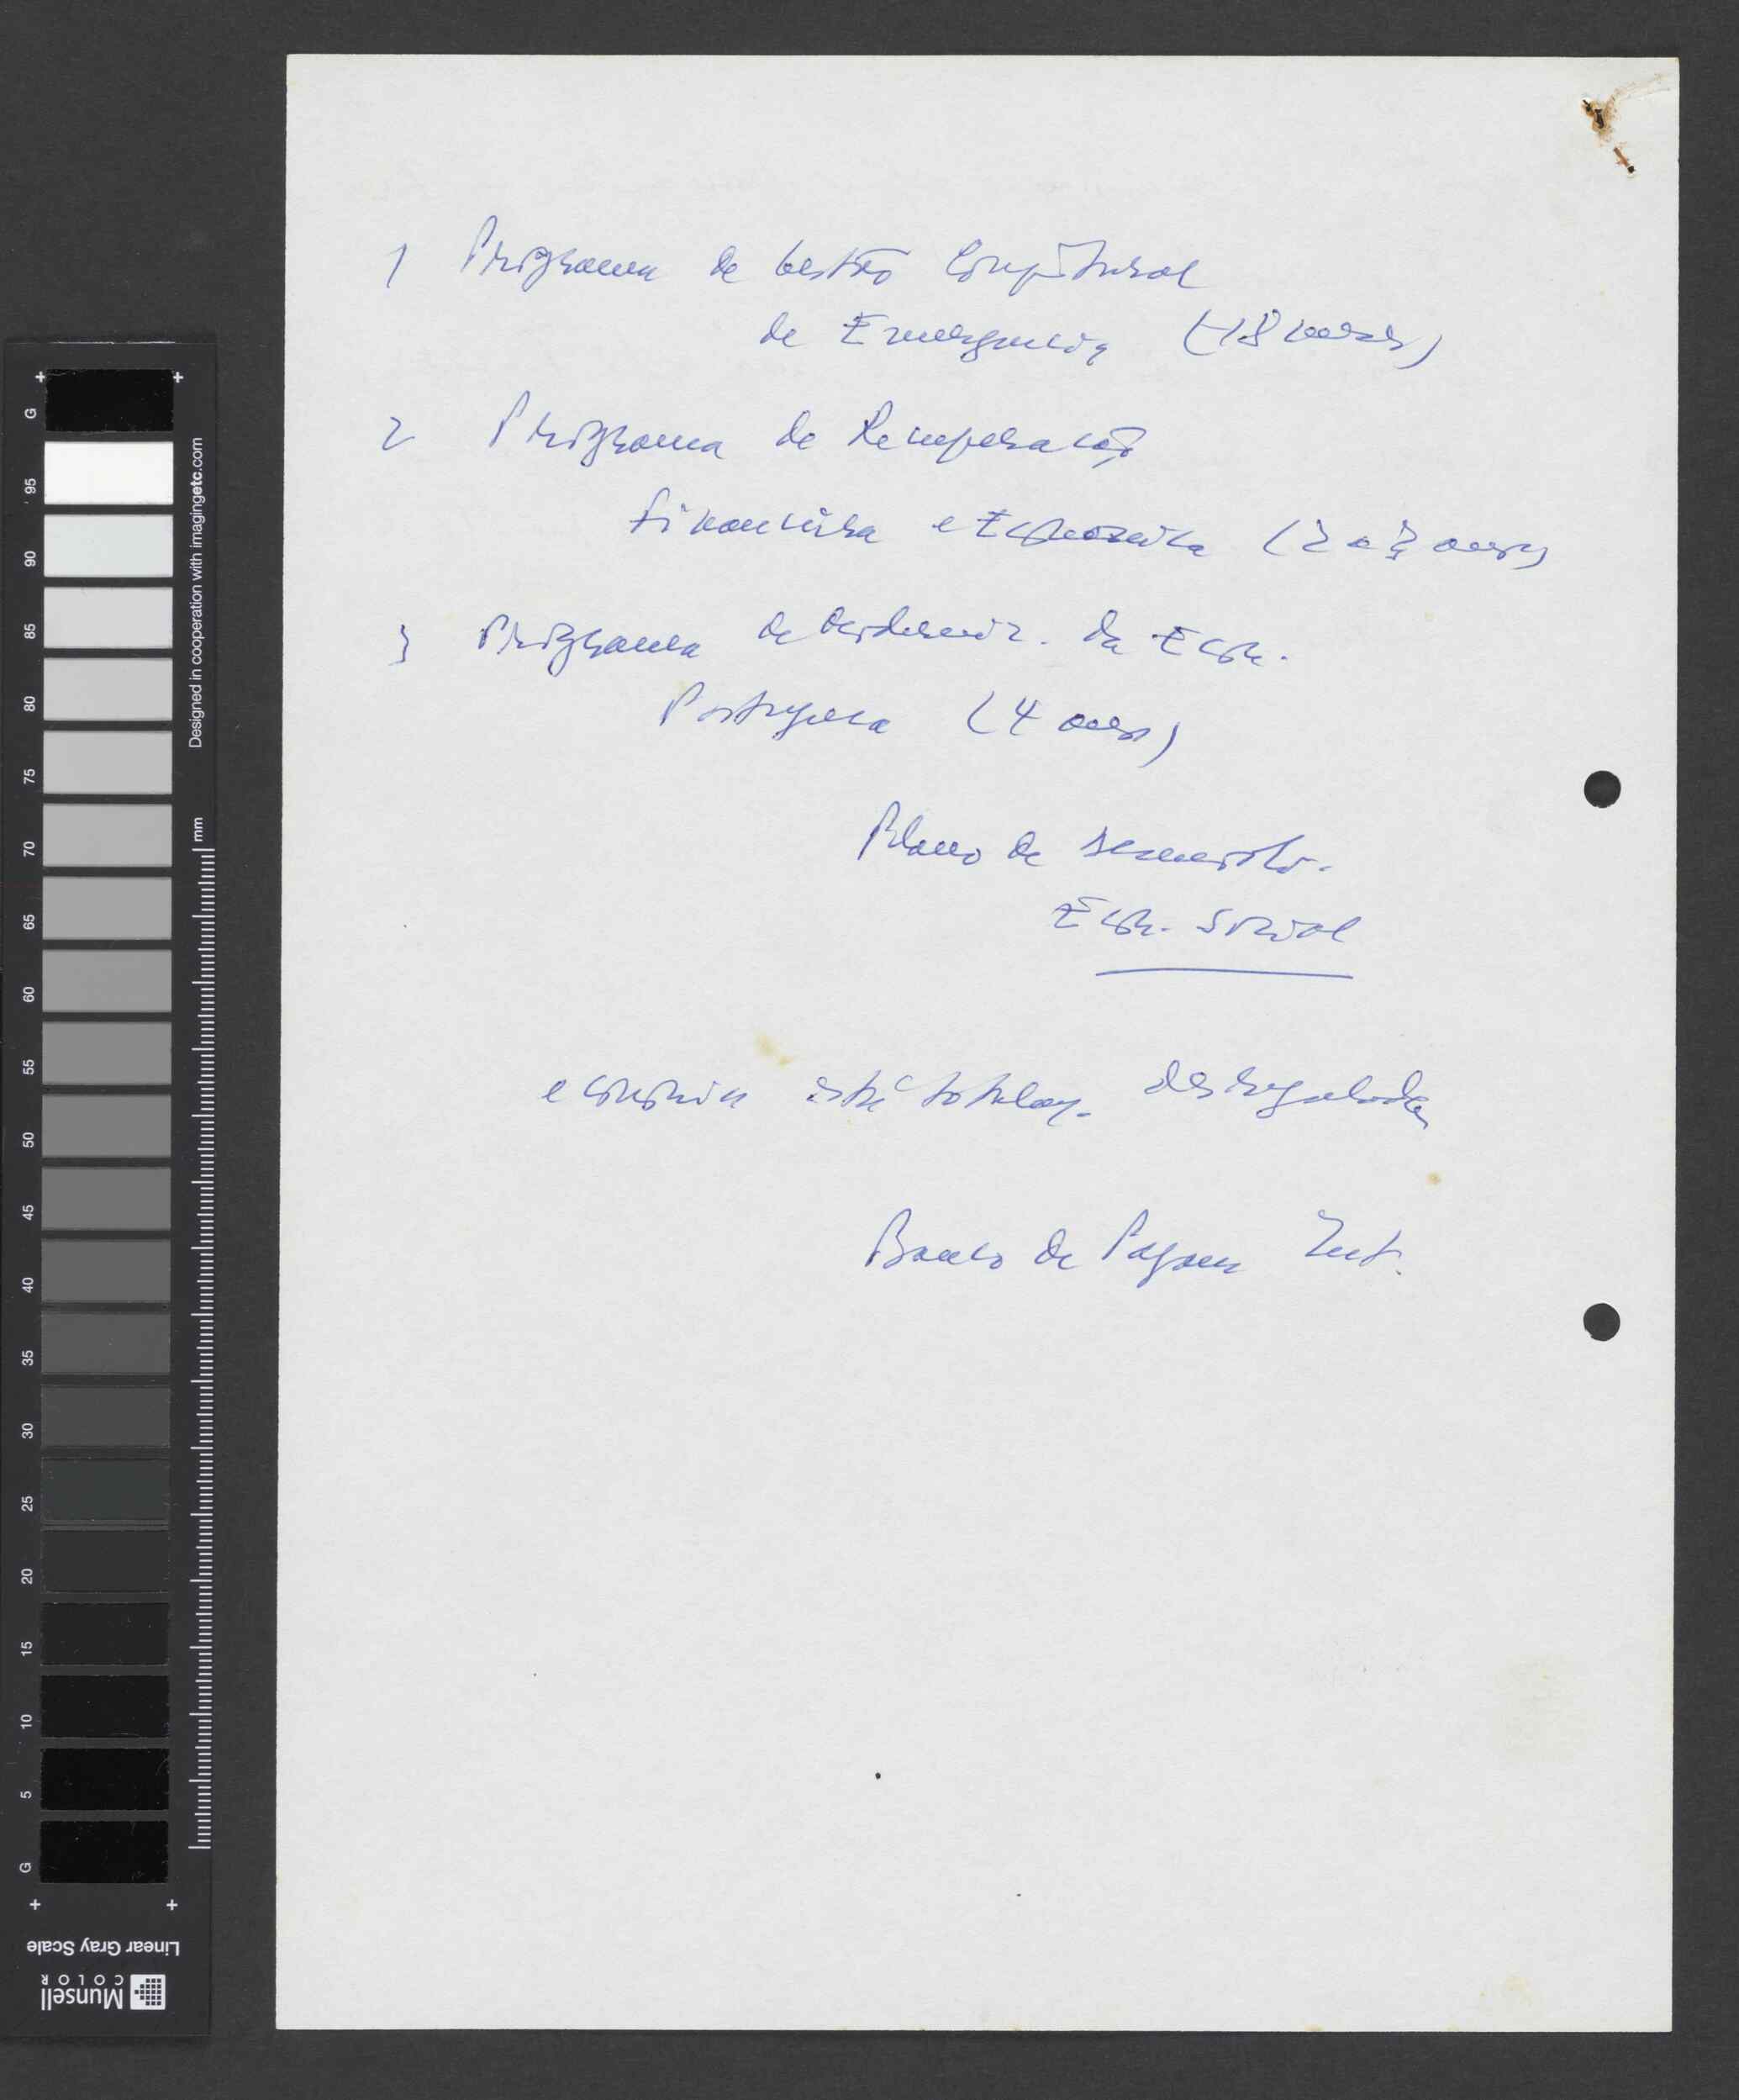 1 Programa de Gestão Conjuntural
de Emergência (18 meses)
2 Programa de Recuperação
Financeira e Económica (2 a 3 anos)
3 Programa de Moderniz. da Econ.
Portuguesa (4 anos)
Plano de
Econ. Social
economia está totalm. desregulada
Banco de Pagam Int.
G
95
90
85
80
75
70
65
60
55
50
45
40
35
30
25
20
15
10
5
G
Designed in cooperation with imagingetc.com
mm
Linear Gray Scale
Munsell
COLOR